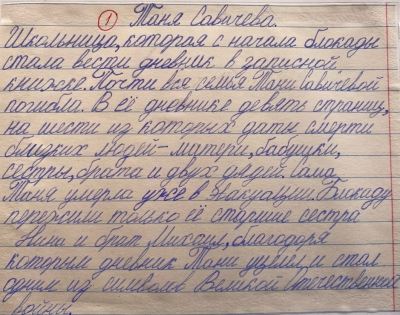 ① Таня Савичева.
Школьница, которая с начала блокады
стала вести дневник в записной
книжке. Почти вся семья Тани Савичевой
погибла. В её дневнике девять страниц,
на шести из которых даты смерти
близких людей - матери, бабушки,
сестры, брата и двух дядей. Сама
Таня умерла уже в эвакуации. Блокаду
пережили только её старшие сестра
Нина и брат Михаил, благодоря
которым дневник Тани уцелел и стал
одним из символв Великой Отечественной
войны.